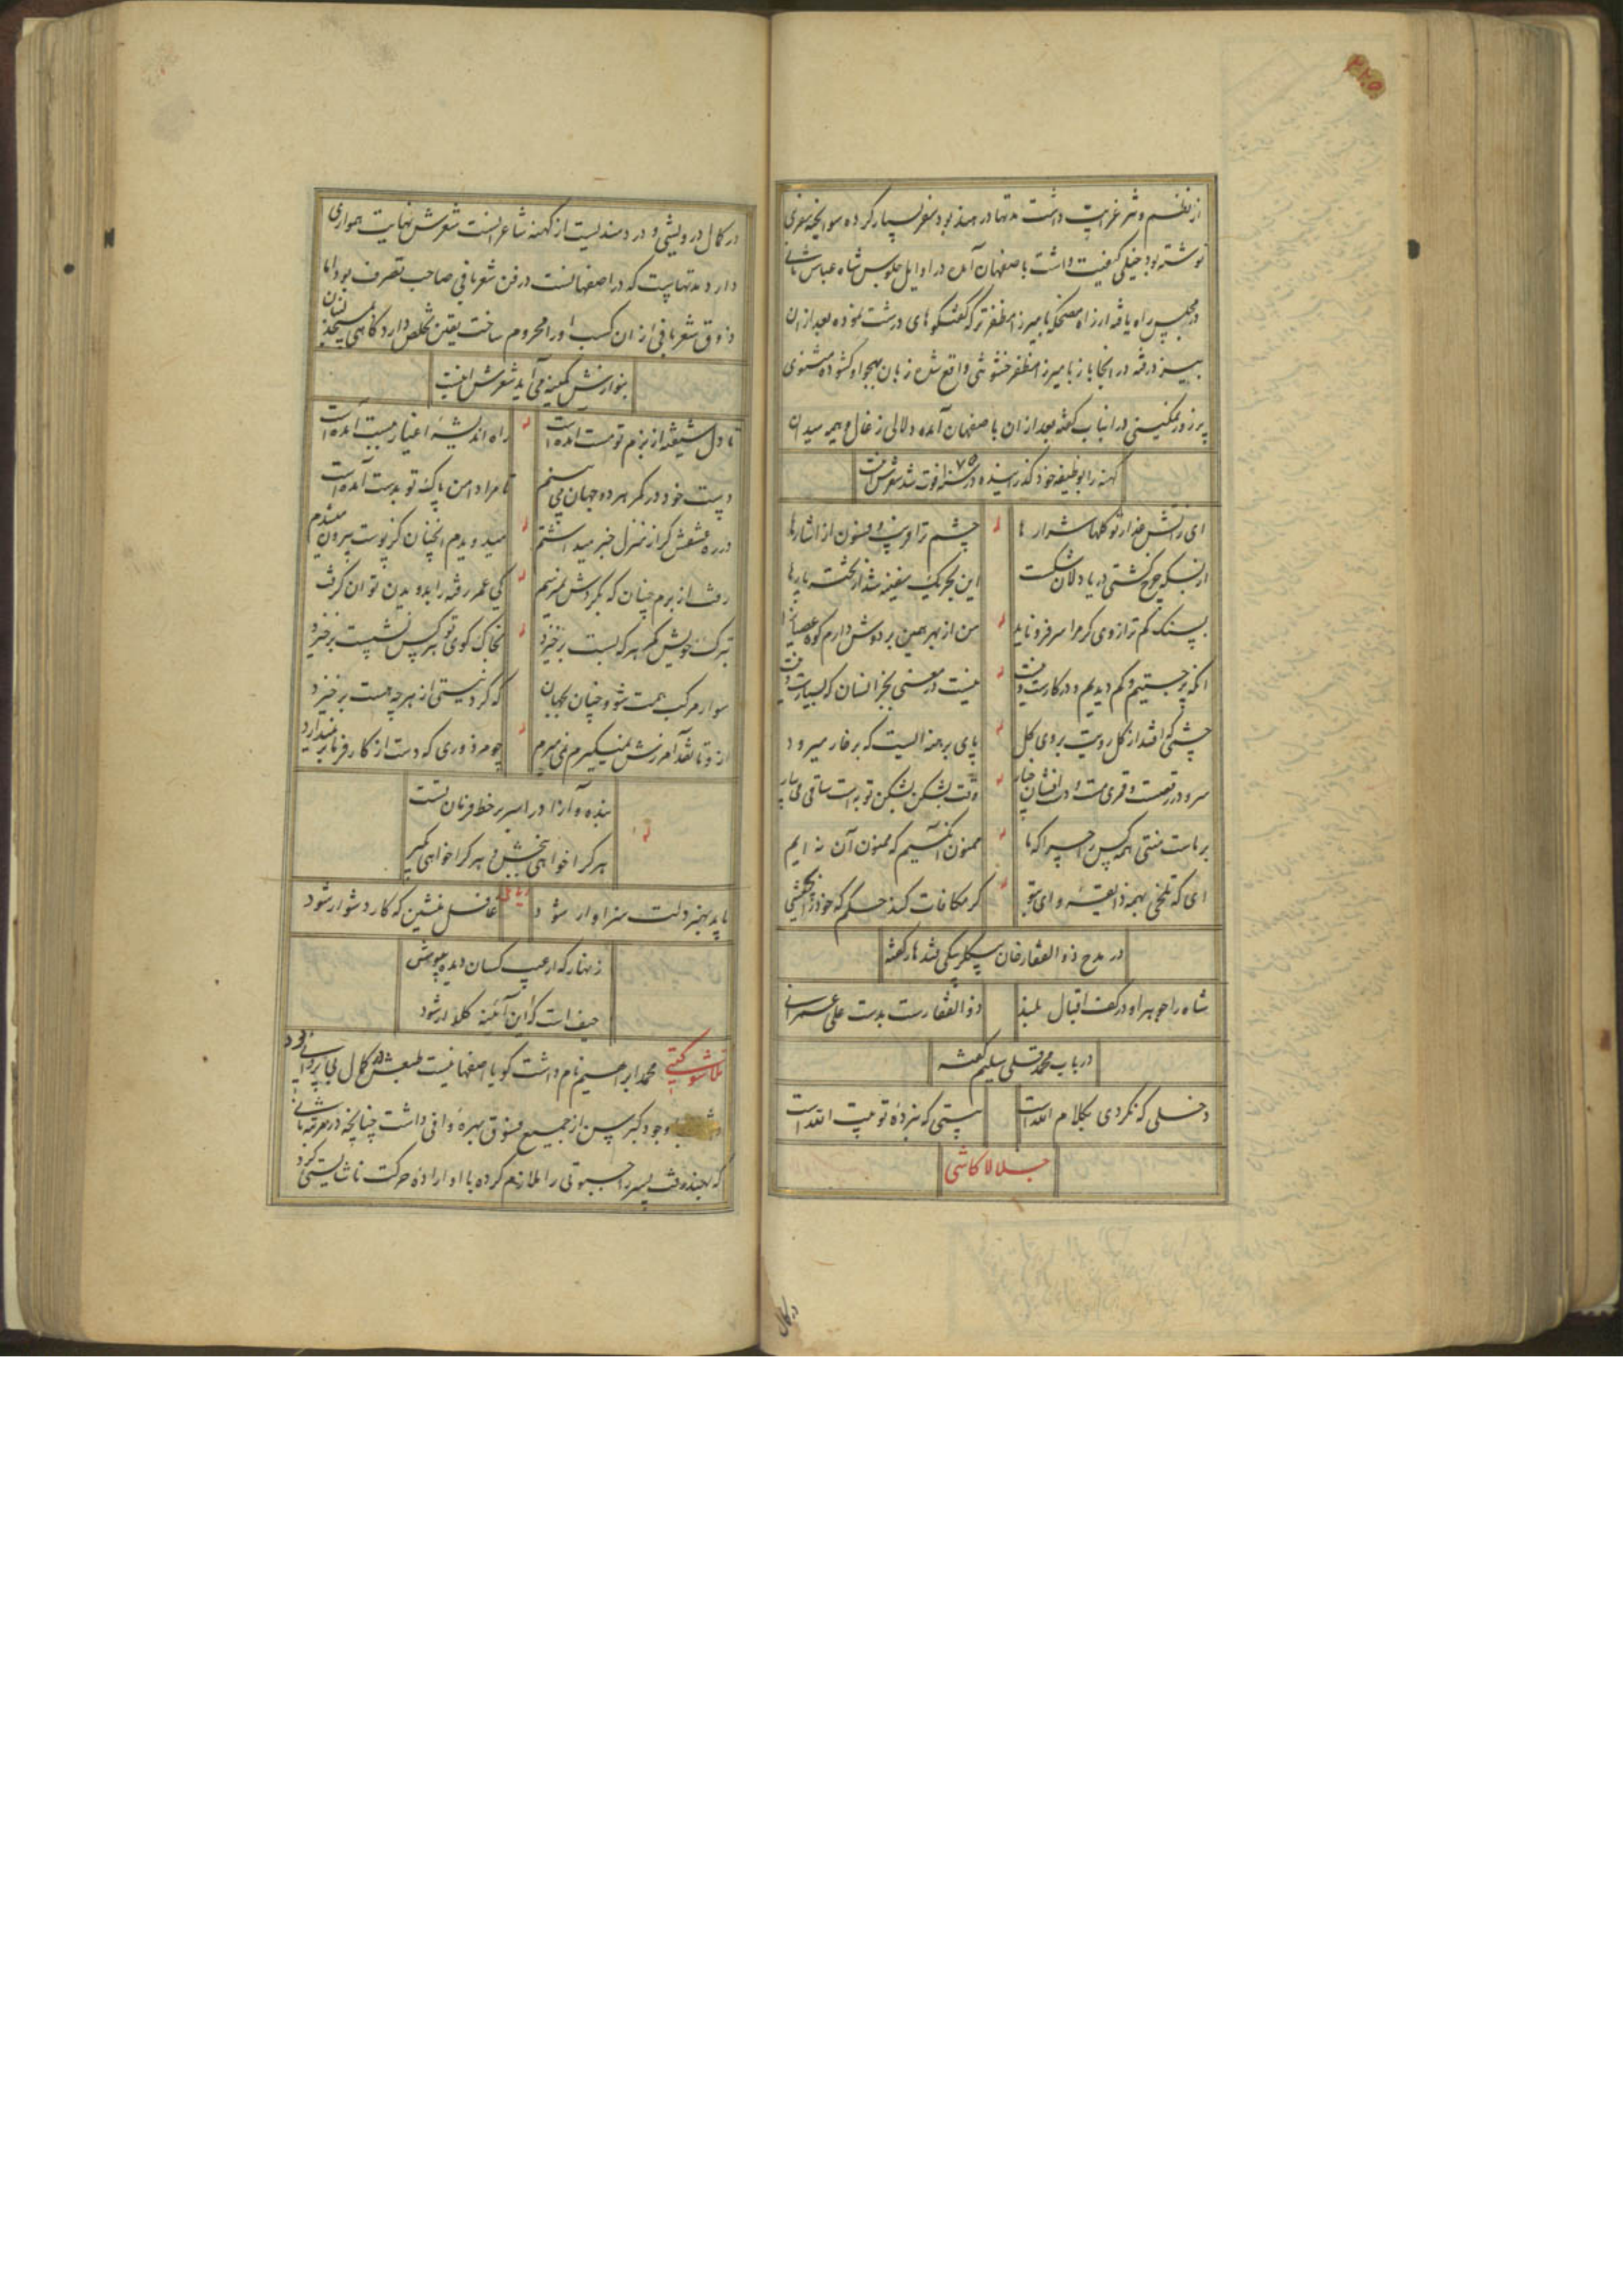 ۲۲۵
از نظم و نثر غرابت داشت مدتها در هند بود سفر بسیار کرده سوانحه سفری
نوشته بود خیلی کیفیت داشت باصفهان آمده در اوایل جلوس شاه عباس ثانی
در مجلس راه یافته از راه مضحکه با میرزا مظفر ترکه گفتگوهای درشت نموده بعد از ان
رفته در انجا باز با میرزا مظفر خشونتی واقع شده زبان بهجو او گشوده مثنوی
پر زور نمکینی در انباب گفته بعد از ان باصفهان آمده دلالی زغال و هیمه میدان
کهنه را بوظیفه خود گذرانیده در سنه ۷۵ فوت شد شعرش اینست
ای ز آتش عذار تو گلها شرارها
چشم ترا و فسون از اشارها
از بسکه چرخ کشتی دریا دلان شکست
این بحر یک سفینه شد از تخته پارها
بسنگ کم ترازوی کرم را سر فرو ناید
من از بهر همین بر دوش دارم کوه عصیانرا
انکه پر جستیم و کم دیدیم و در کارست و نیست
نیست در معنی بجز انسان که بسیارست و نیست
چشمی که افتد از گل رویت بروی گل
پای برهنه ایست که بر خار میرود
سرو در رقصست و قمری مست و
وقت بشکن بشکن توبه است ساقی می بیار
بر ماست منتی همه کس را چرا که ما
ممنون کسیم که ممنون آن نه ایم
ای که تلخی بهمه ذایقه
گر مکافات کند حکم که خود را بچشی
در مدح ذوالفقار خان بیگلربیگی قندهار گفته
شاه را جوهر او در کف اقبال بلند
ذوالفقارست بدست علی عمرانی
در باب محمد قلی سلیم گفته
دخلی که نکردی بکلام الله است
بیتی که نبرده تو بیت الله است
جلالا کاشی
در کمال
در کمال درویشی و دردمندیست از کهنه شاعرانست شعرش نهایت همواری
دارد مدتهاییست که در اصفهانست در فن شعربافی صاحب تصرف بود اما
ذوق شعربافی از ان کسب او را محروم ساخت یقین تخلص دارد گاهی
بنوازش کمینه می آید شعرش اینست
تا دل شیفته از بزم تو مست آمده است
راه اندیشه اغیار ببست آمده است
دست خود در کمر هر دو جهان می بینم
تا مرا دامن پاک تو بدست آمده است
در ره عشقش گر از منزل خبر میداشتم
میدویدم انچنان کز پوست بیرون میشدم
رفت از برم چنان که بگردش نمیرسم
کی عمر رفته را بدویدن توان گرفت
بترک خویش کمر هر که بست برخیزد
بخاک کوی تو هر کس نشست برخیزد
سوار مرکب همت شو و چنان بجهان
که گرد نیستی از هر چه هست برخیزد
از تو تا نقد آمرزش نمیگیرم نمی میرم
چو مزدوری که دست از کارفرما بر نمیدارد
بنده و آزاد را سر بر خط فرمان تست
هر کرا خواهی ببخش و هر کرا خواهی بگیر
رباعی
باید بهنر دلت سزاوار شود
غافل منشین که کار دشوار شود
زنهار که از عیب کسان دیده بپوشی
حیف است که این آئینه گله دار شود
محمد ابراهیم نام داشت گویا اصفهانیست طبعش در کمال بی پروایی بود
وجود کبر سن از جمیع فسوق بهره وافی داشت چنانچه در مرتبه
که بچند وقت پسر را ملازم کرده با او اراده حرکت ناشایستی کرد